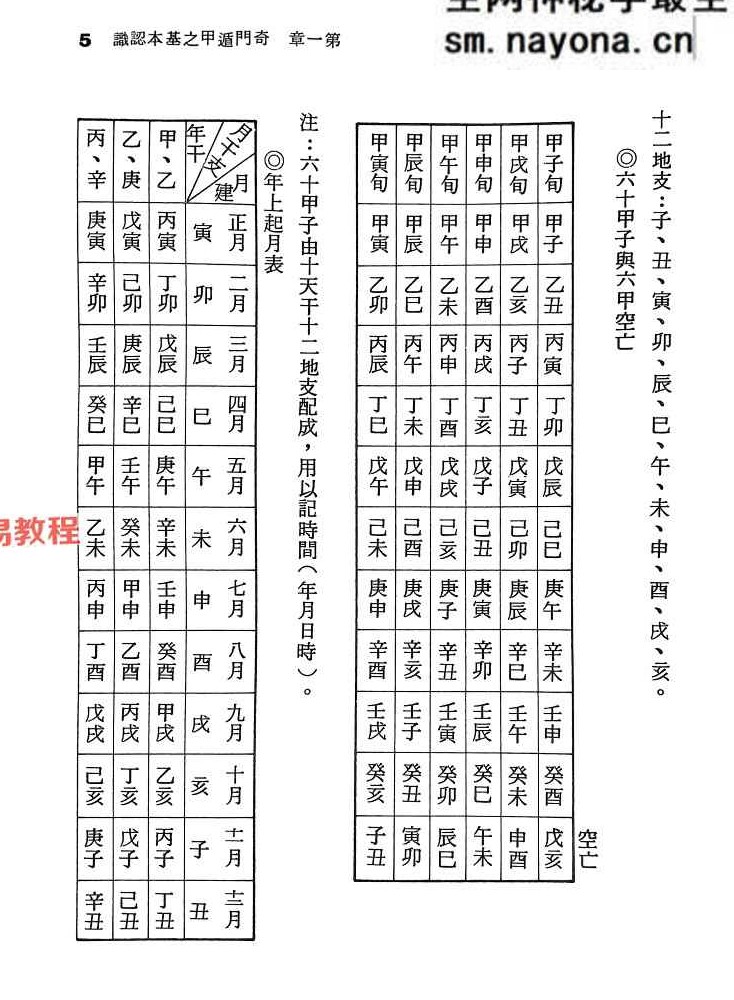 第一章 奇門遁甲之基本認識 5
sm.nayona.cn
十二地支：子、丑、寅、卯、辰、巳、午、未、申、酉、戌、亥。
◎六十甲子與六甲空亡
空亡
甲子旬 甲子 乙丑 丙寅 丁卯 戊辰 己巳 庚午 辛未 壬申 癸酉 戊亥
甲戌旬 甲戌 乙亥 丙子 丁丑 戊寅 己卯 庚辰 辛巳 壬午 癸未 申酉
甲申旬 甲申 乙酉 丙戌 丁亥 戊子 己丑 庚寅 辛卯 壬辰 癸巳 午未
甲午旬 甲午 乙未 丙申 丁酉 戊戌 己亥 庚子 辛丑 壬寅 癸卯 辰巳
甲辰旬 甲辰 乙巳 丙午 丁未 戊申 己酉 庚戌 辛亥 壬子 癸丑 寅卯
甲寅旬 甲寅 乙卯 丙辰 丁巳 戊午 己未 庚申 辛酉 壬戌 癸亥 子丑
注：六十甲子由十天干十二地支配成，用以記時間（年月日時）。
◎年上起月表
月建 月干支 年干
正月 二月 三月 四月 五月 六月 七月 八月 九月 十月 十一月 十二月
寅 卯 辰 巳 午 未 申 酉 戌 亥 子 丑
甲、乙 丙寅 丁卯 戊辰 己巳 庚午 辛未 壬申 癸酉 甲戌 乙亥 丙子 丁丑
乙、庚 戊寅 己卯 庚辰 辛巳 壬午 癸未 甲申 乙酉 丙戌 丁亥 戊子 己丑
丙、辛 庚寅 辛卯 壬辰 癸巳 甲午 乙未 丙申 丁酉 戊戌 己亥 庚子 辛丑
易教程